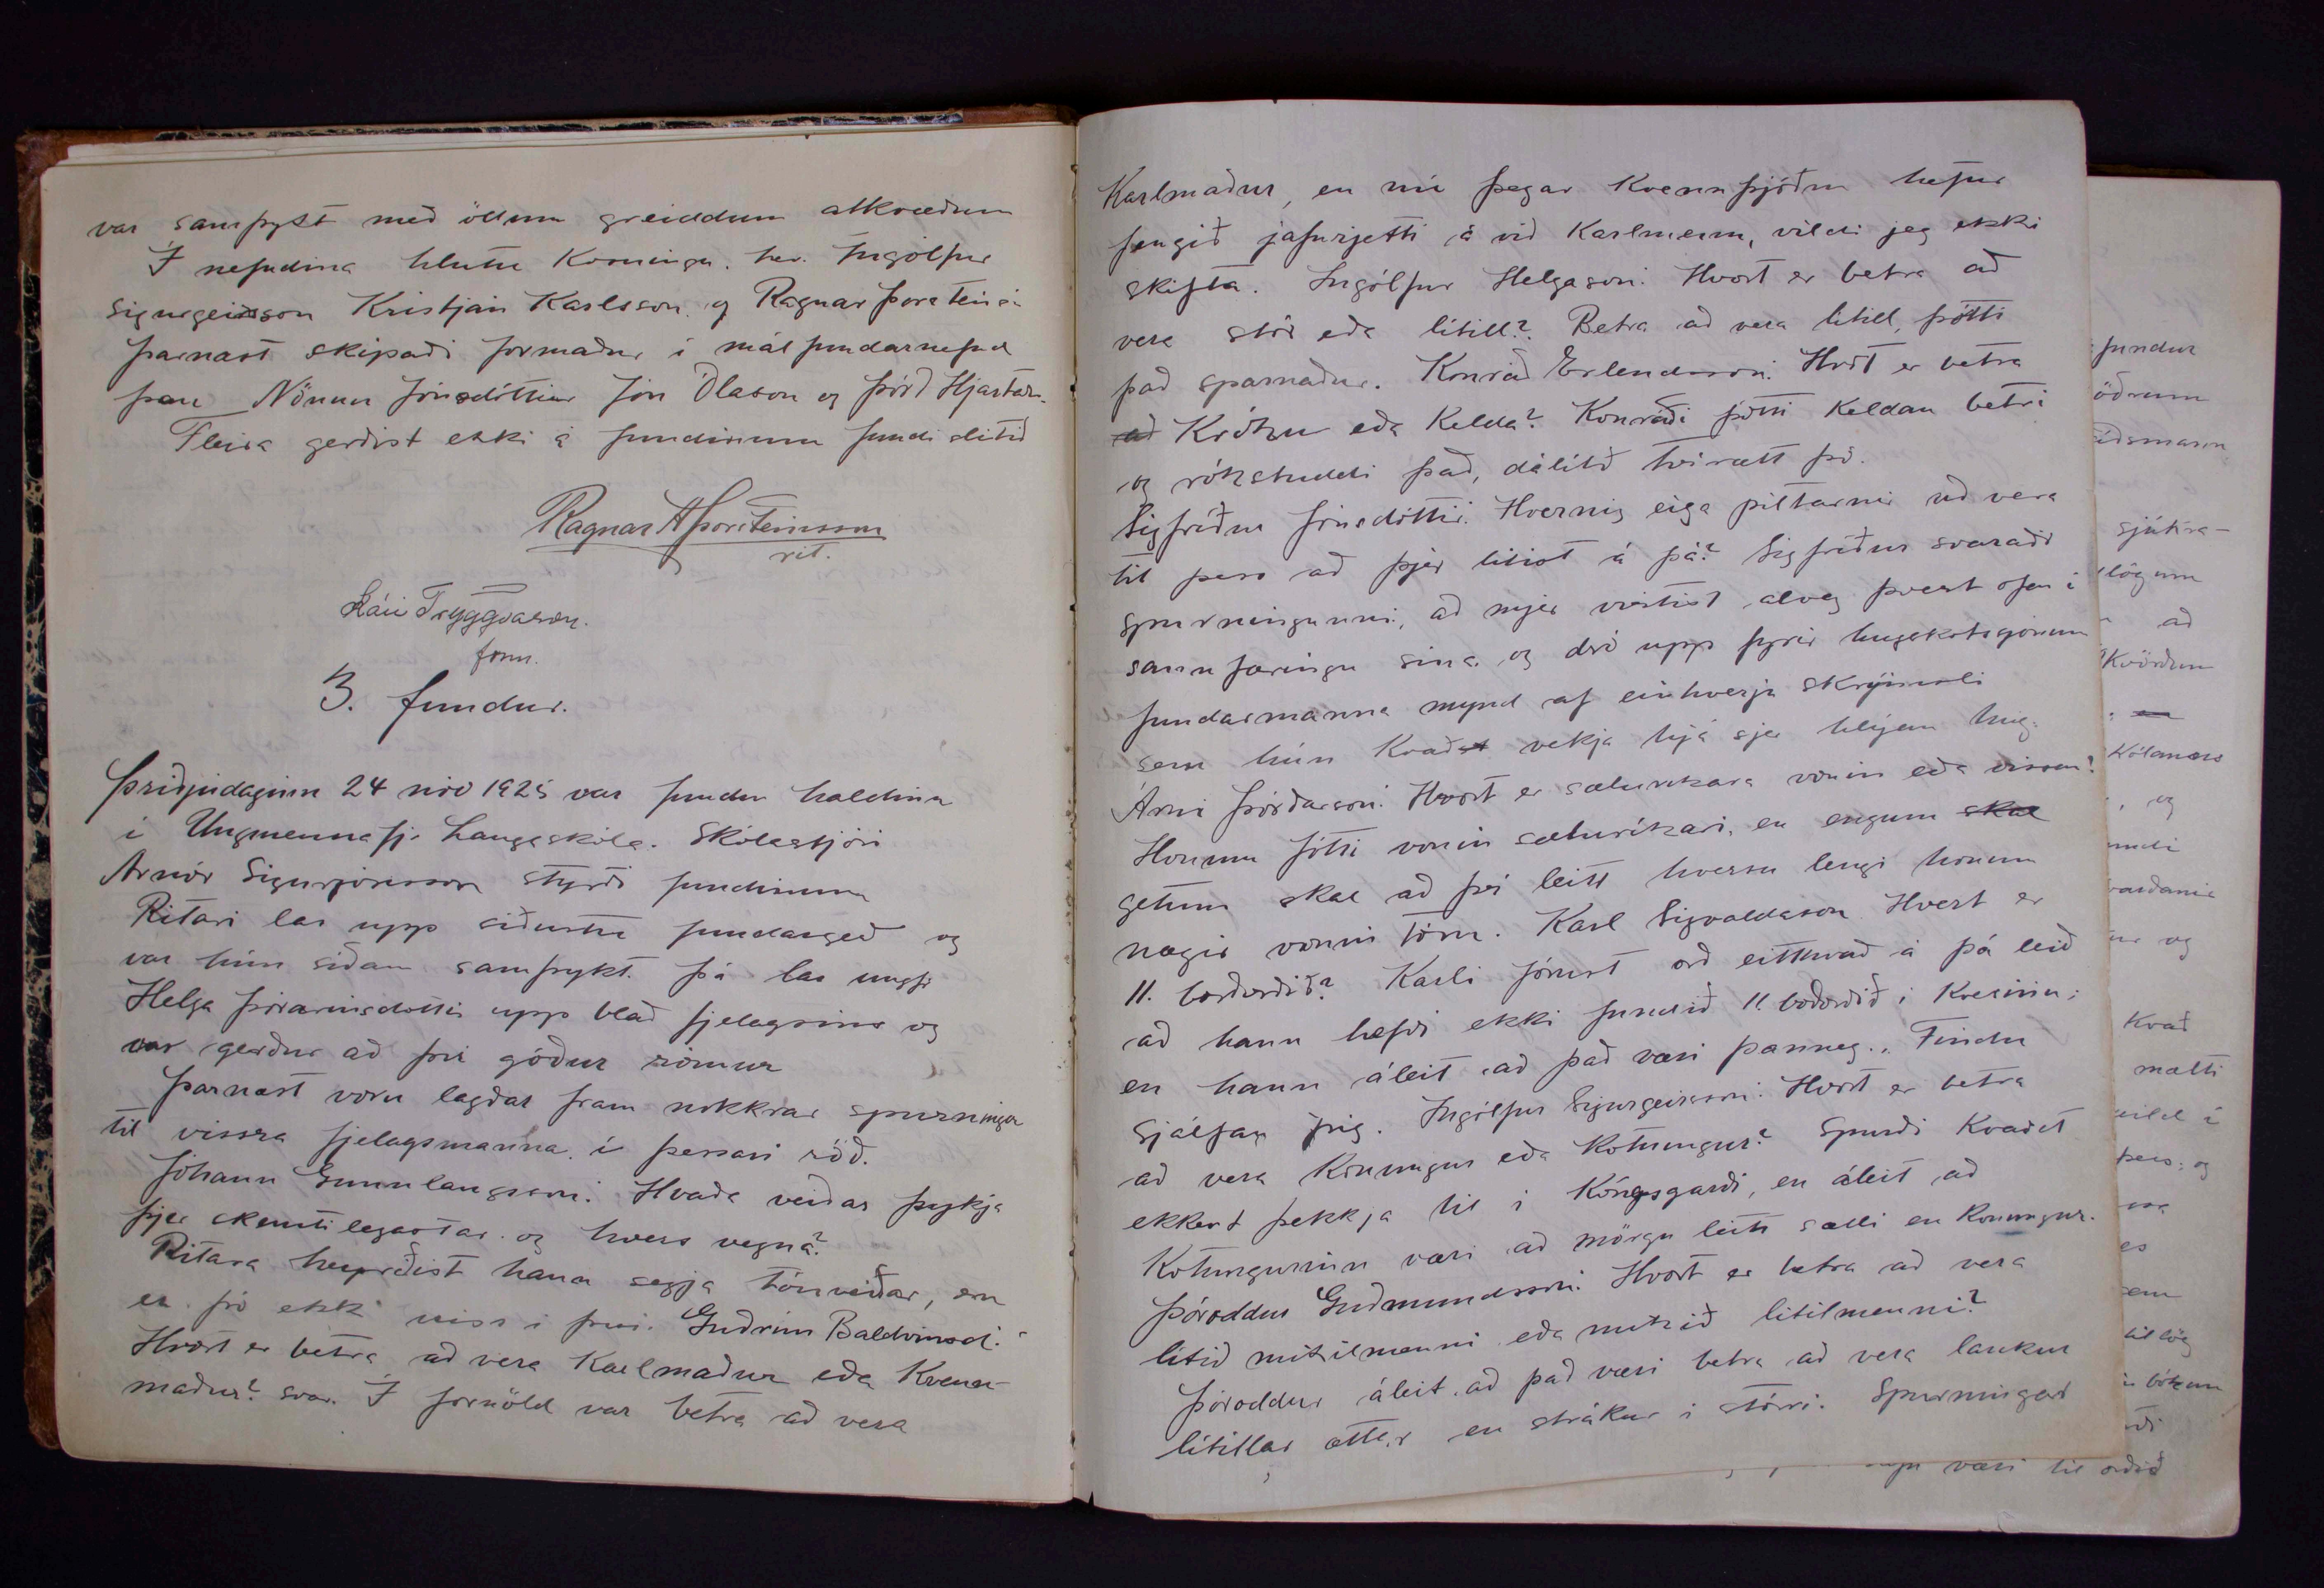 var samþykt með öllum greiddum atkvæðum
Í nefndina hlutu kosningu. hr. Ingólfur
Sigurgeirsson Kristján Karlsson og Ragnar Þorsteins.
Þarnæst skipaði formaður í málfundarnefnd
þau Nönnu Jónsdóttir Jón Ólason og Þórð Hjartar.
Fleira gerðist ekki á fundinum fundi slitið
Ragnar A Þorsteinsson
rit.
Kári Tryggvason.
form.
3. fundur.
Þriðjudaginn 24 nóv 1925 var fundur haldinn
í Ungmennafj. Laugaskóla. Skólastjóri
Arnór Sigurjónsson stýrði fundinum
Ritari las upp síðustu fundargerð og
var hún síðan samþykt. Þá las ungfr
Helga Þórarinsdóttir upp blað fjelagsins og
var gerður að því góður rómur
Þarnæst voru lagðar fram nokkrar spurningar
til vissra fjelagsmanna í þessari röð.
Jóhann Gunnlaugsson: Hvaða veiðar þykja
þjer skemtilegastar og hvers vegna?
Ritara heyrðist hann segja tónveiðar, en
er þó ekki viss í því. Guðrún Baldvinsd.:
Hvort er betra að vera Karlmaður eða Kvenn-
maður? svar. Í fornöld var betra að vera
Karlmaður, en nú þegar Kvennþjóðin hefur
fengið jafnrjetti á við Karlmenn, vildi jeg ekki
skifta. Ingólfur Helgason: Hvort er betra að
vera stór eða lítill? Betra að vera lítill, þótti
það sparnaður. Konráð Erlendsson: Hvort er betra
að Krókur eða Kelda? Konráði þótti Keldan betri
og rökstuddi það, dálítið tvírætt þó.
Sigfríður Jónsdóttir: Hvernig eiga piltarnir að vera
til þess að þjer lítist á þá? Sigfríður svaraði
spurningunni, að mjer virtist alveg þvert ofan í
sannfæringu sína og dró upp fyrir hugskotsjónum
fundarmanna mynd af einhverju skrýmsli
sem hún kvað vekja hjá sjer hlýjan hug.
Árni Þórðarson: Hvort er sælurikara vonin eða vissan?
Honum þótti vonin sælurikari, en engum skal
getum skal að því leitt hversu lengi honum
nægir vonin tóm. Karl Sigvaldason Hvert er
11. boðorðið? Karli fórust orð eitthvað á þá leið
að hann hefði ekki fundið 11. boðorðið í Kverinu;
en hann áleit að það væri þannig. „Findu
sjálfan þig. Ingólfur Sigurgeirsson: Hvort er betra
að vera Konungur eða Kotungur? Spurði kvaðst
ekkert þekkja til í Kóngsgarði, en áleit að
Kotungurinn væri að mörgu leiti sælli en Konungur.
Þóroddur Guðmundsson: Hvort er betra að vera
lítið mikilmenni eða mikið lítilmenni?
Þóroddur áleit að það væri betra að vera laukur
lítillar ættar en strákur í stórri. Spurningar
fundur
öðrum
sjúkra-
lögum
að
Kvörðum
og
Kvað
mætti
þess; og
væri til orðið